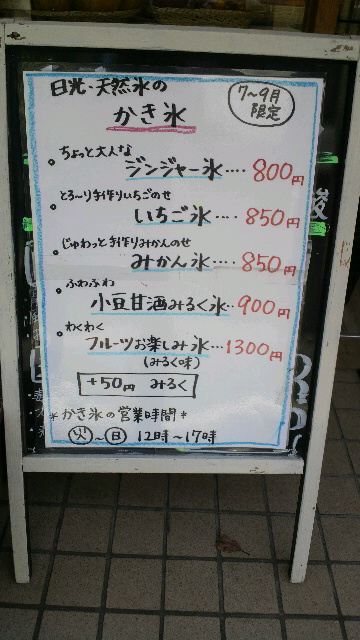 日光・天然氷の
かき氷
7〜9月
限定
ちょっと大人な
ジンジャー氷‥‥800円
とろ〜り手作りいちごのせ
いちご氷‥‥850円
じゅわっと手作りみかんのせ
みかん氷‥‥850円
ふわふわ
小豆甘酒みるく氷‥900円
わくわく
フルーツお楽しみ氷‥‥1300円
(みるく味)
+50円 みるく
*かき氷の営業時間*
火〜日 12時〜17時